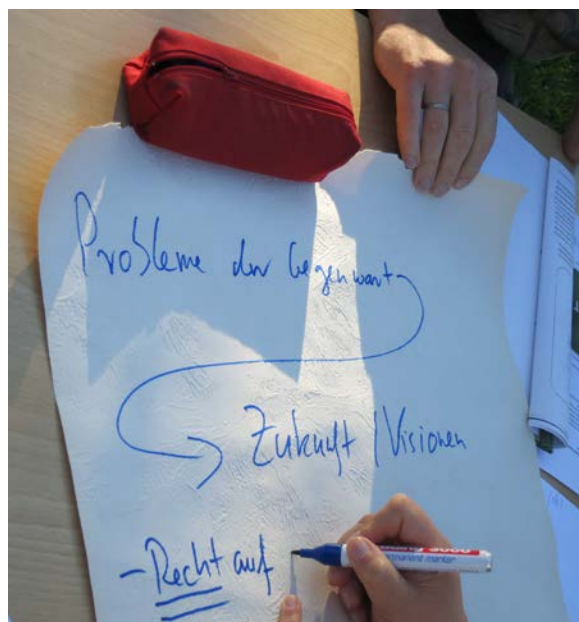 Probleme der Gegenwart
Zukunft / Visionen
- Recht auf
edding 3000
permanent marker